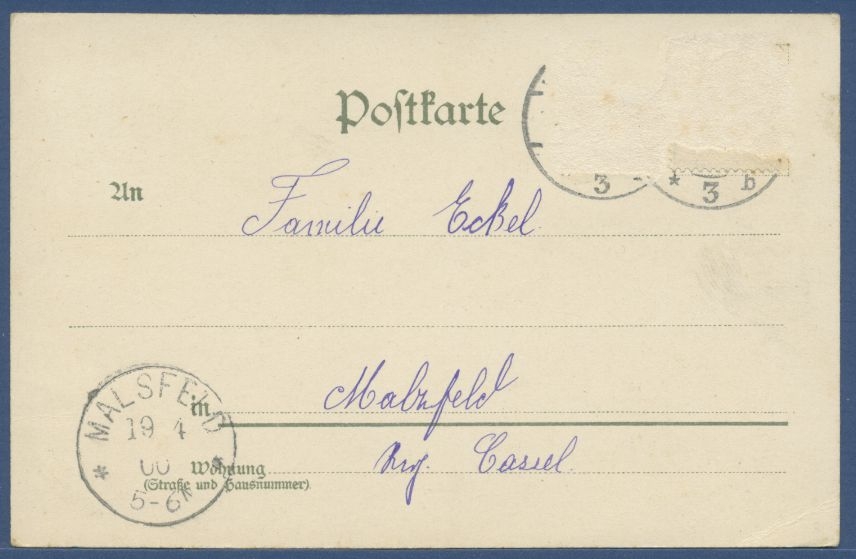 Postkarte
3 - * 3 b
An Familie Eckel
in Malsfeld
Wohnung
(Straße und Hausnummer)
Cassel.
MALSFELD
19 4
00
5-6N